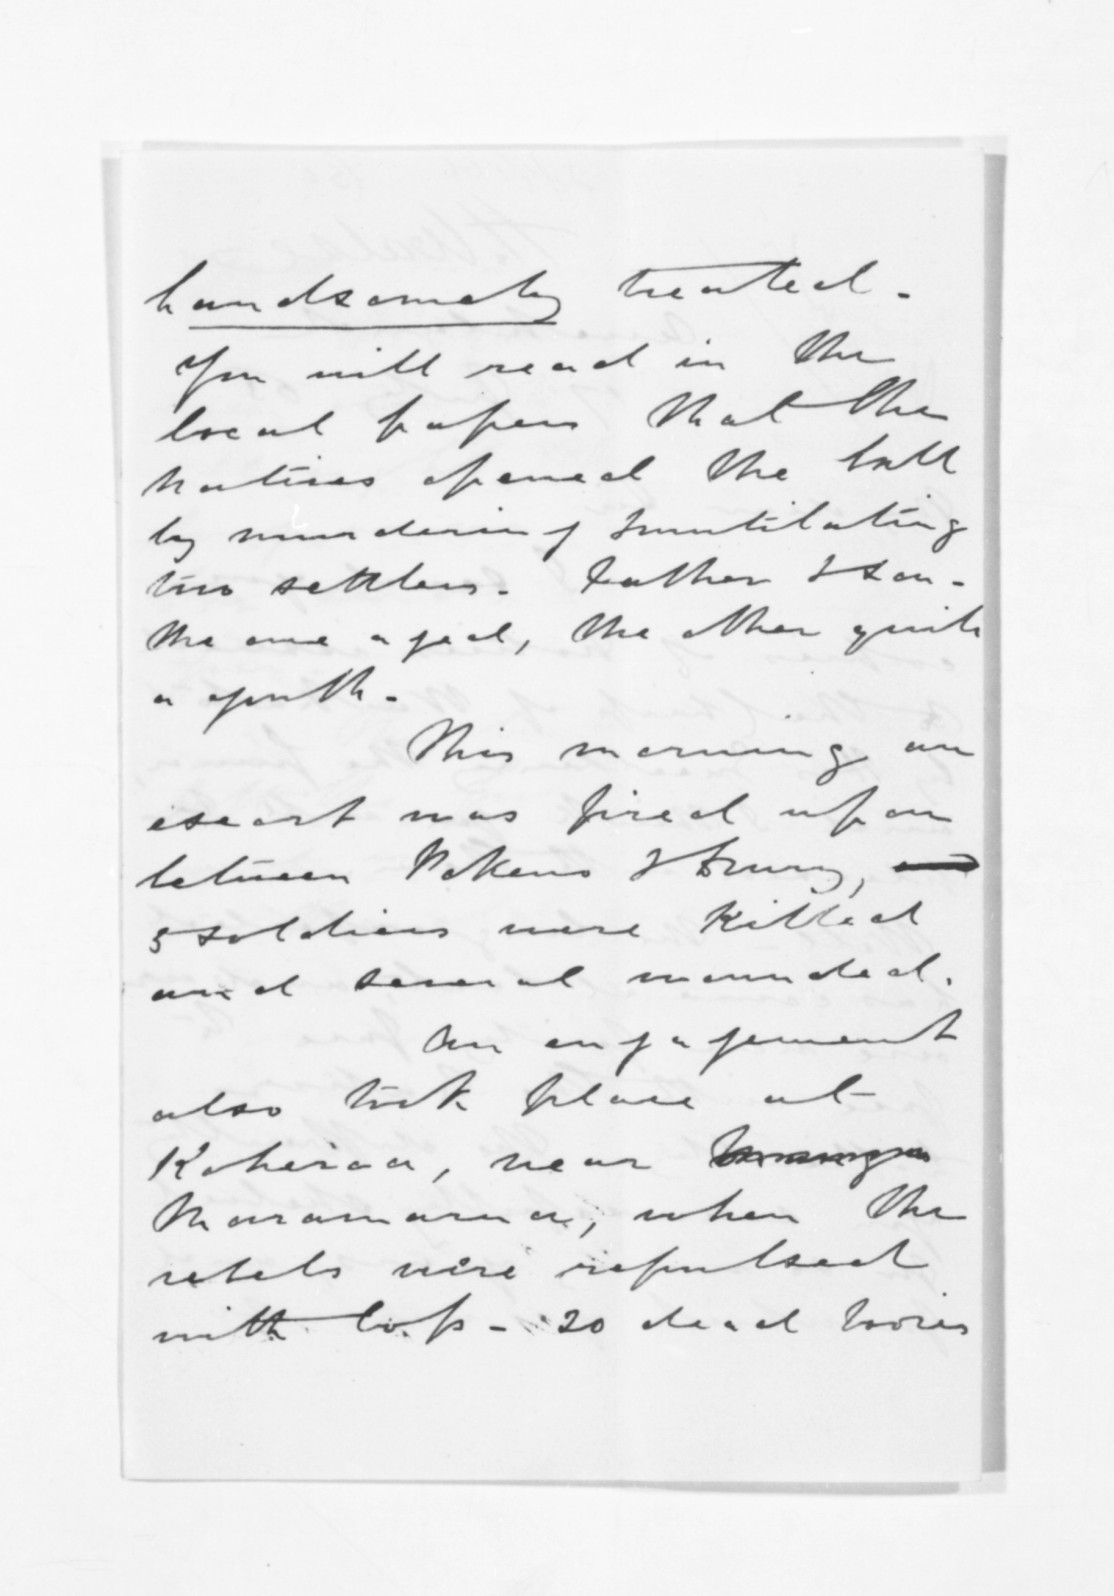 handsomely treated.
You will read in the
local papers that the
natives opened the ball
by murdering & mutilating
two settlers. Father & son.
the one aged, the other quite
a youth.
This morning an
escort was fired upon
between Pokeno & Drury,
5 soldiers were killed
and several wounded.
An engagement
also took place at
Koheroa, near
Maramarua, when the
rebels were repulsed
with loss - 20 dead bodies